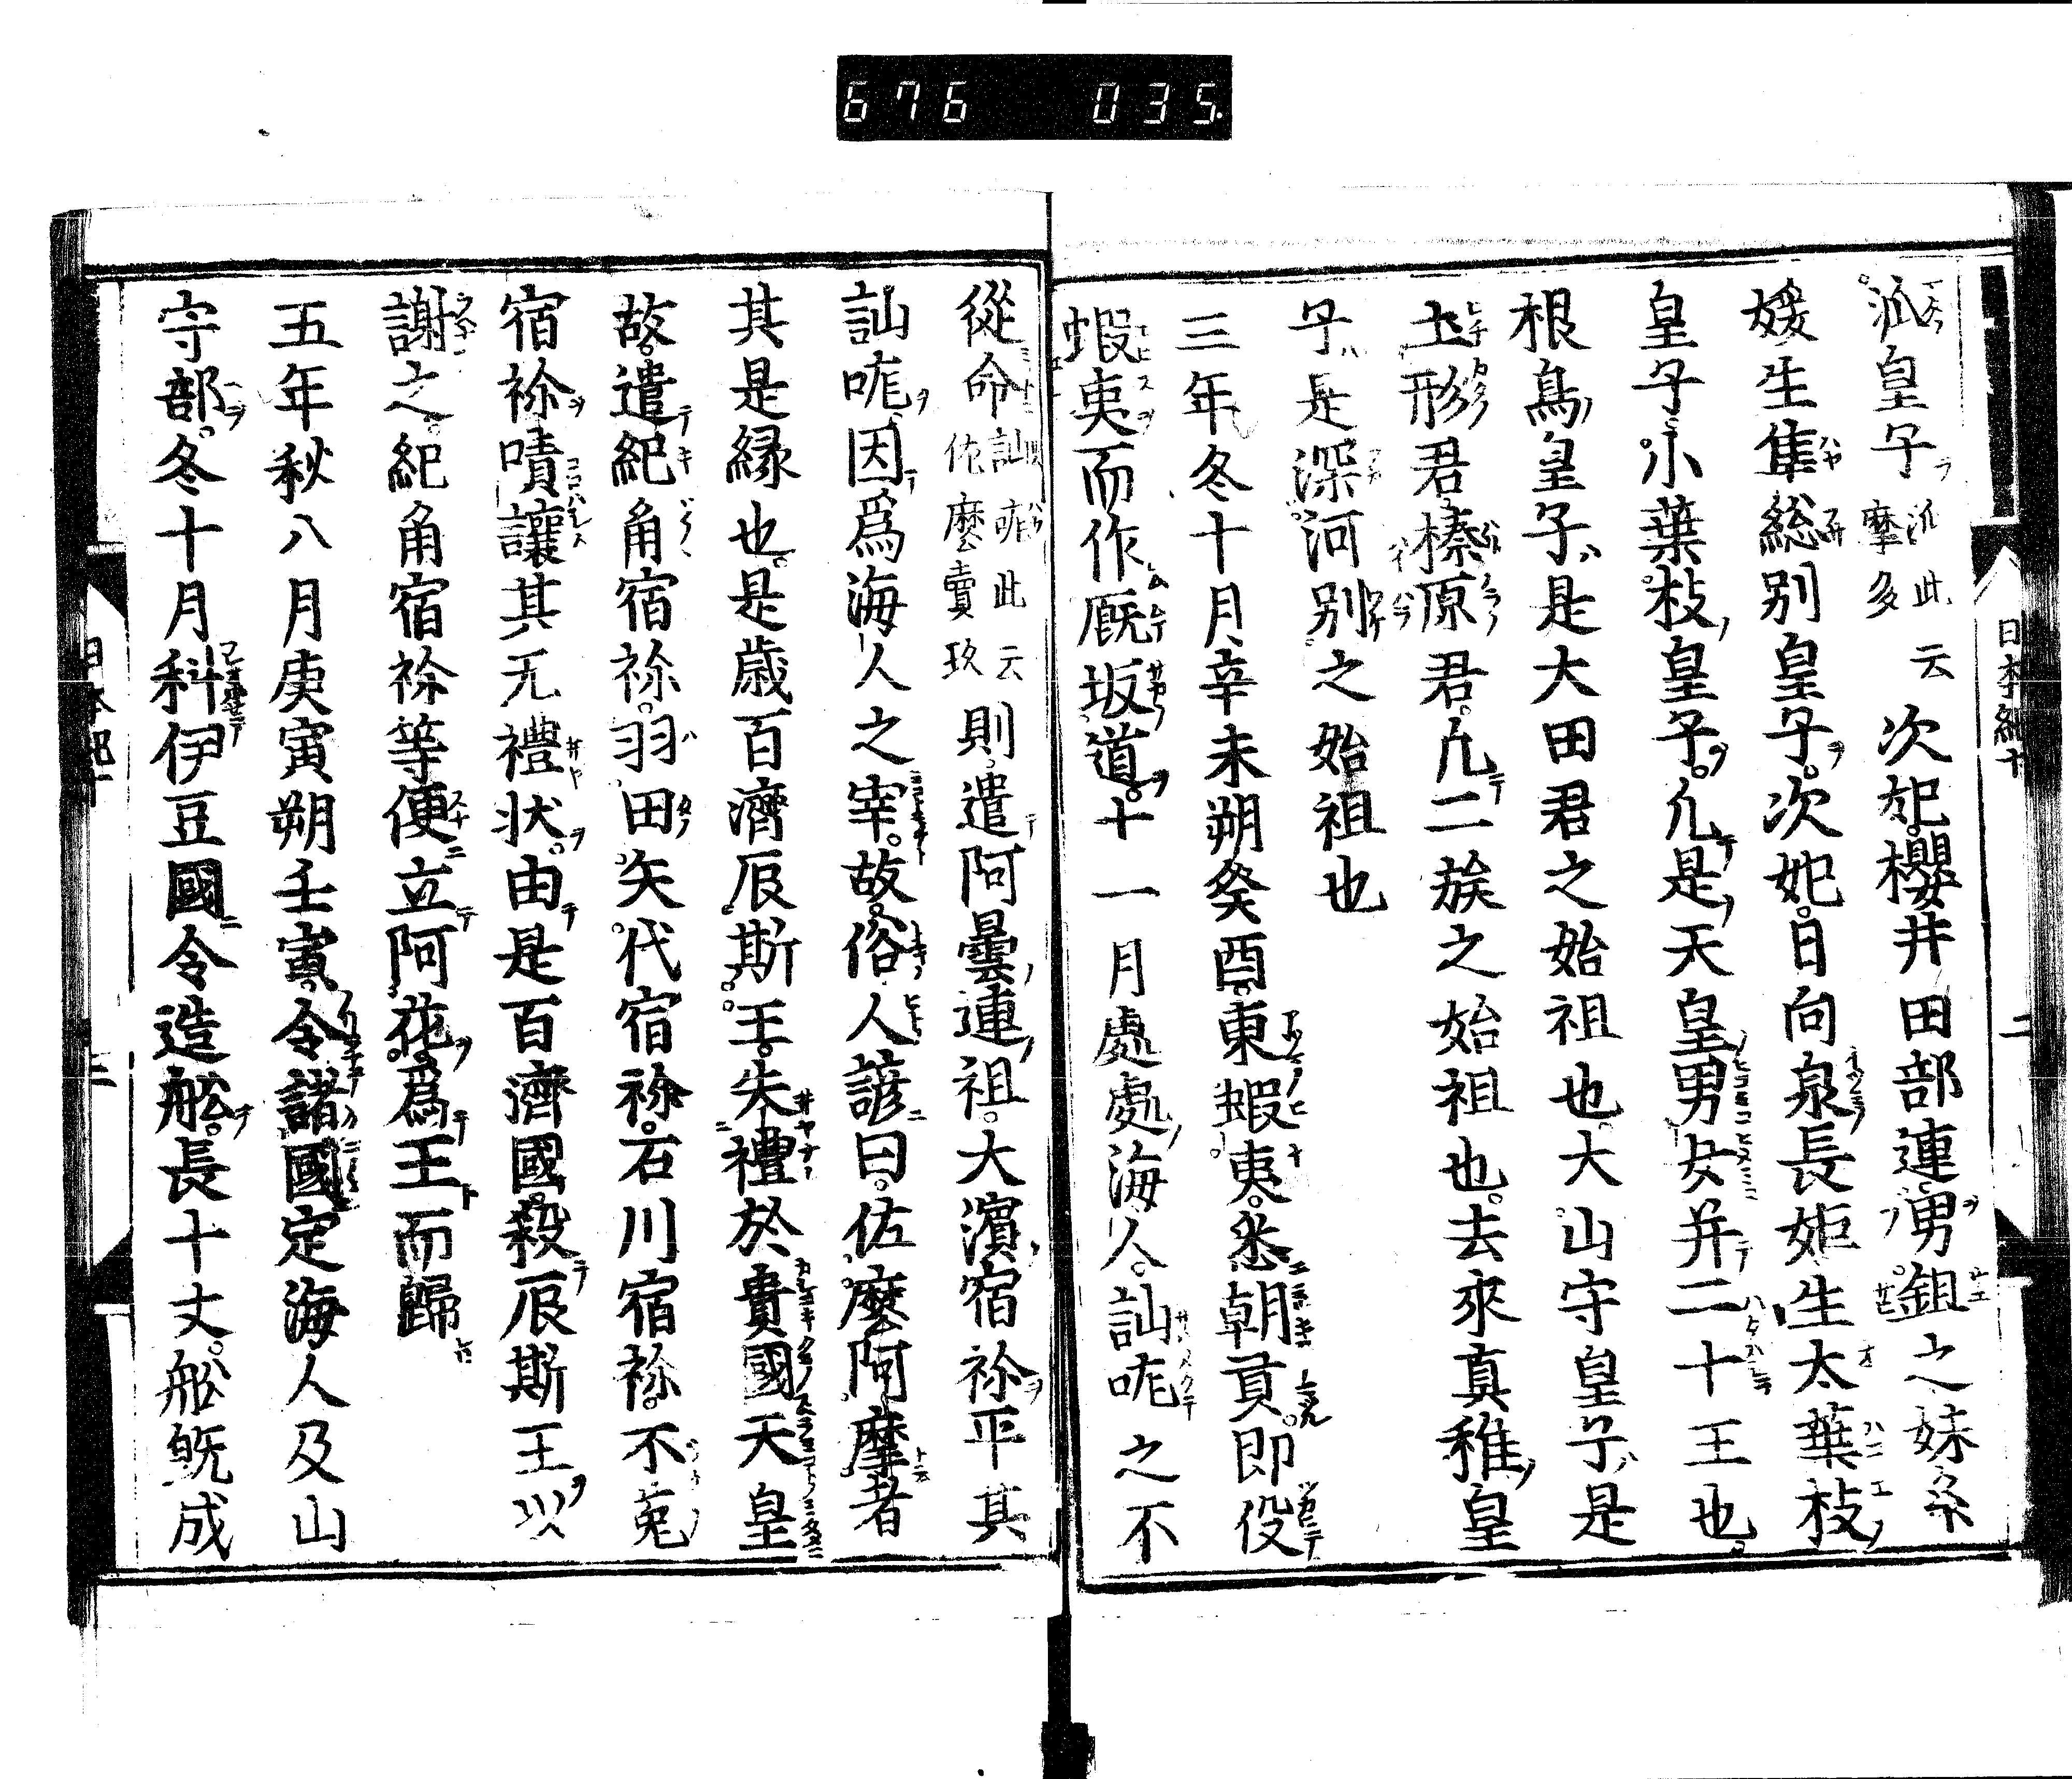 676 035.
日本紀十 二
派皇子派此云摩多次妃櫻井田部連男鉏之妹糸
媛生隼総別皇子次妃日向泉長姫生大葉枝
皇子小葉枝皇子凢是天皇男女并二十王也
根鳥皇子是大田君之始祖也大山守皇子是
土形君榛原君凢二族之始祖也去來真稚皇
子是深河別之始祖也
三年冬十月辛未朔癸酉東蝦夷悉朝貢即役
蝦夷而作厩坂道十一月處處海人訕哤之不
從命訕哤此云佐麼賣玖則遣阿曇連祖大濱宿祢平其
訕哤因爲海人之宰故俗人諺曰佐麼阿摩者
其是縁也是歳百濟辰斯王失禮於貴國天皇
故遣紀角宿祢羽田矢代宿祢石川宿祢不菟
宿祢嘖讓其无禮状由是百濟國殺辰斯王以
謝之紀角宿祢等便立阿花爲王而歸
五年秋八月庚寅朔壬寅令諸國定海人及山
守部冬十月科伊豆國令造舩長十丈舩既成
日本紀十 三